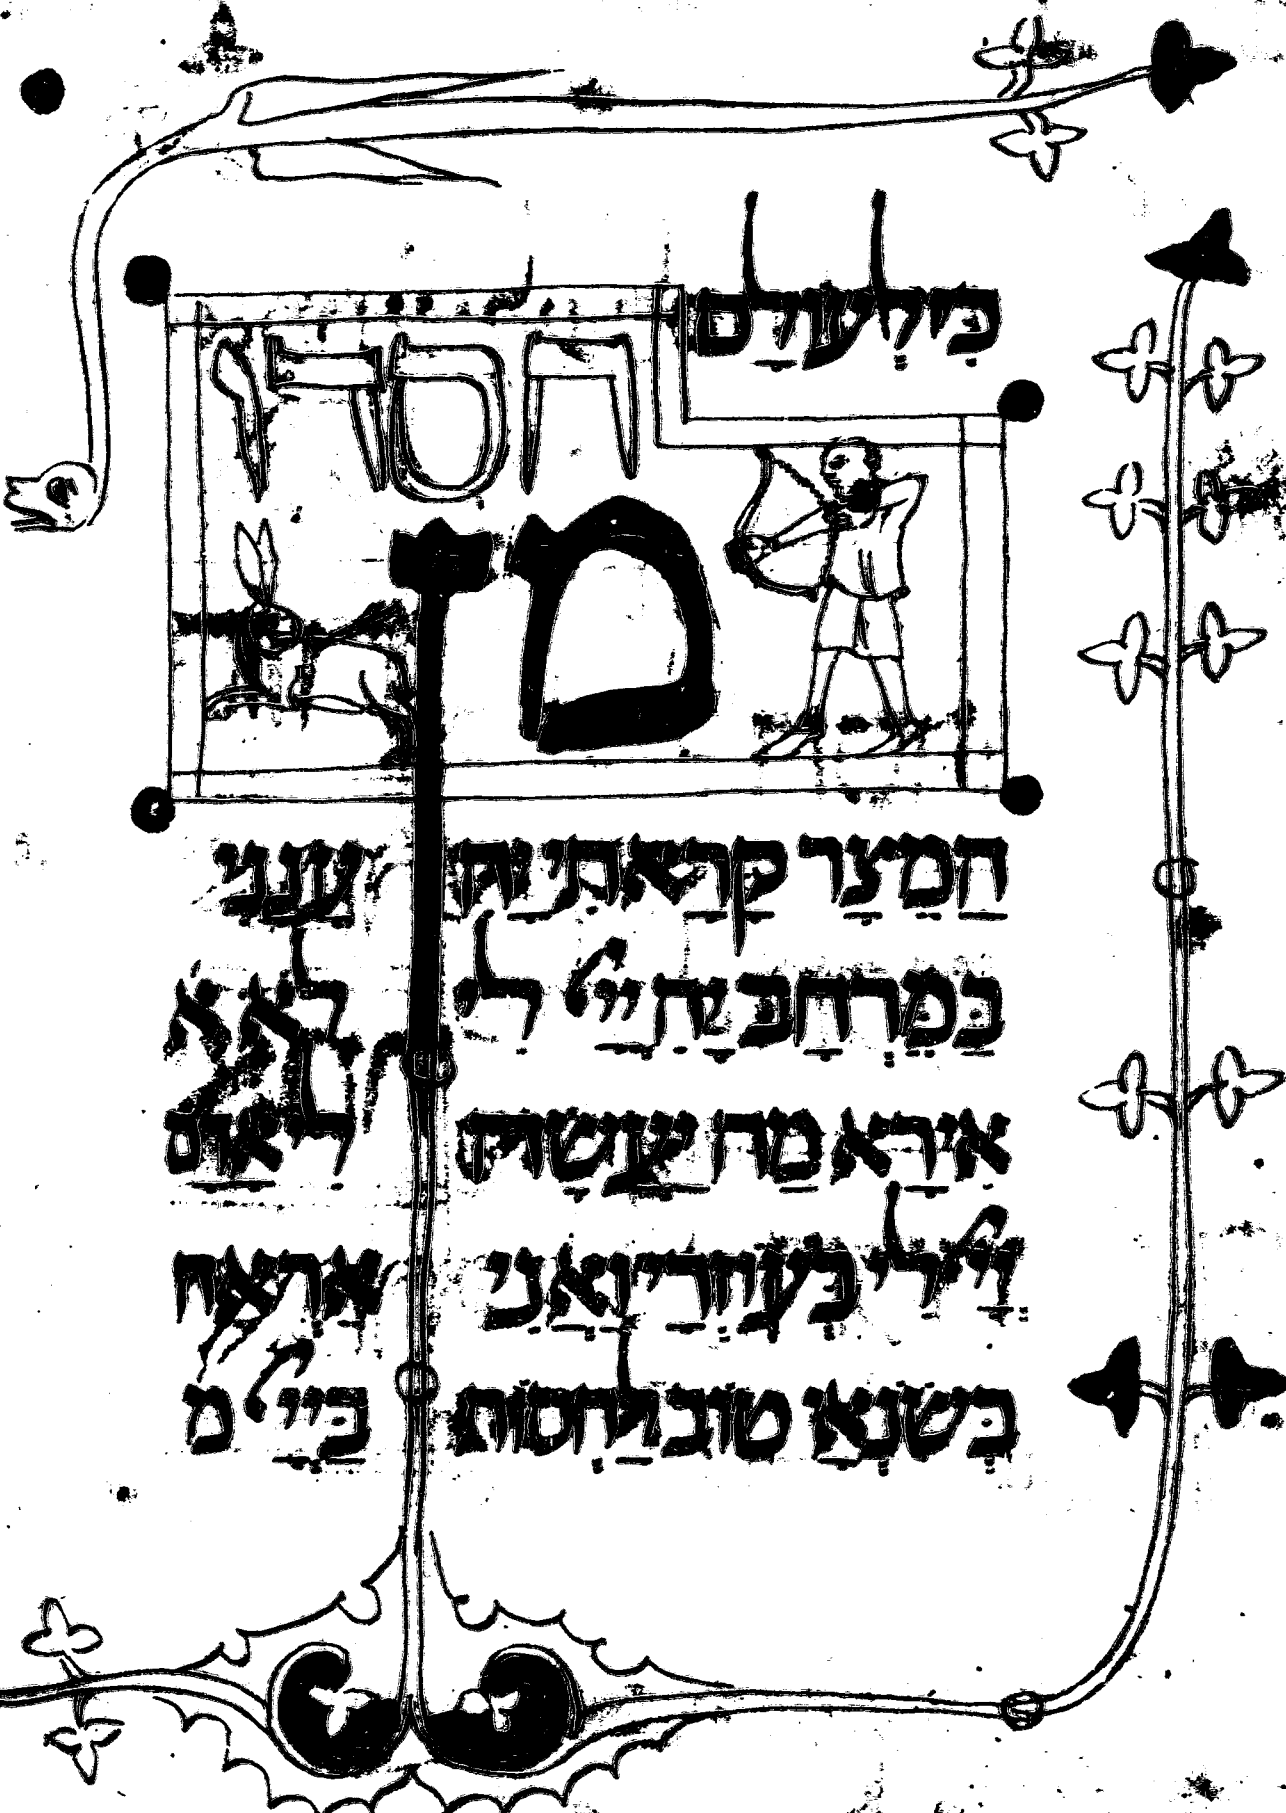 כי לעולם
חסדו
מן
המצר קראתי יה ענני
במרחב יה יי לי לא א
אירא מה יעשה לי אדם
יי לי בעזרי ואני אראה
בשנאי טוב לחסות ביי מ